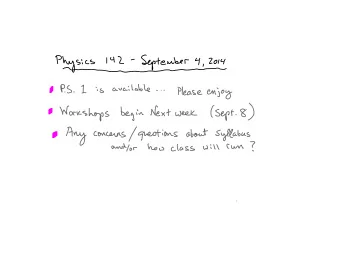 Physics 142 - September 4, 2014
P.S. 1 is available... Please enjoy
Workshops begin Next week (Sept. 8)
Any concerns/questions about Syllabus
and/or how class will run?